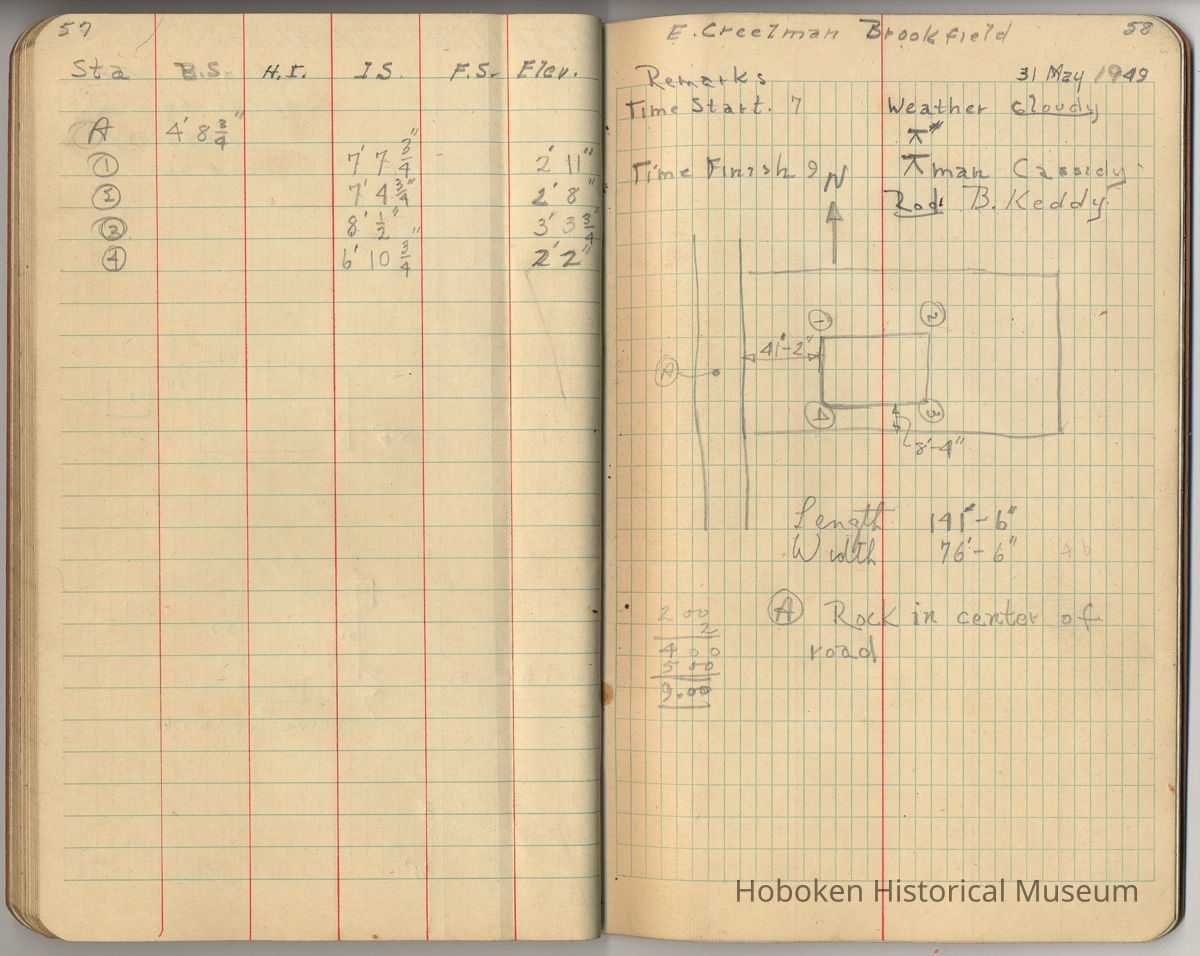 57
Sta B.S. H.I. I.S. F.S. Elev.
A 4' 8 3/4"
① 7' 7 3/4" 2' 11"
② 7' 4 3/4" 2' 8"
③ 8' 1/2" 3' 3 3/4"
④ 6' 10 3/4" 2' 2"
E. Creelman Brookfield 58
Remarks 31 May 1949
Time Start. 7 Weather cloudy
⊼#
Time Finish 9 ⊼man Cassidy
N Rod B. Keddy
① ②
41'-2"
A
④ ③
8'-4"
Length 141'-6"
Width 76'-6"
Ⓐ Rock in center of
road
2 00
2
4 00
5 00
9.00
Hoboken Historical Museum